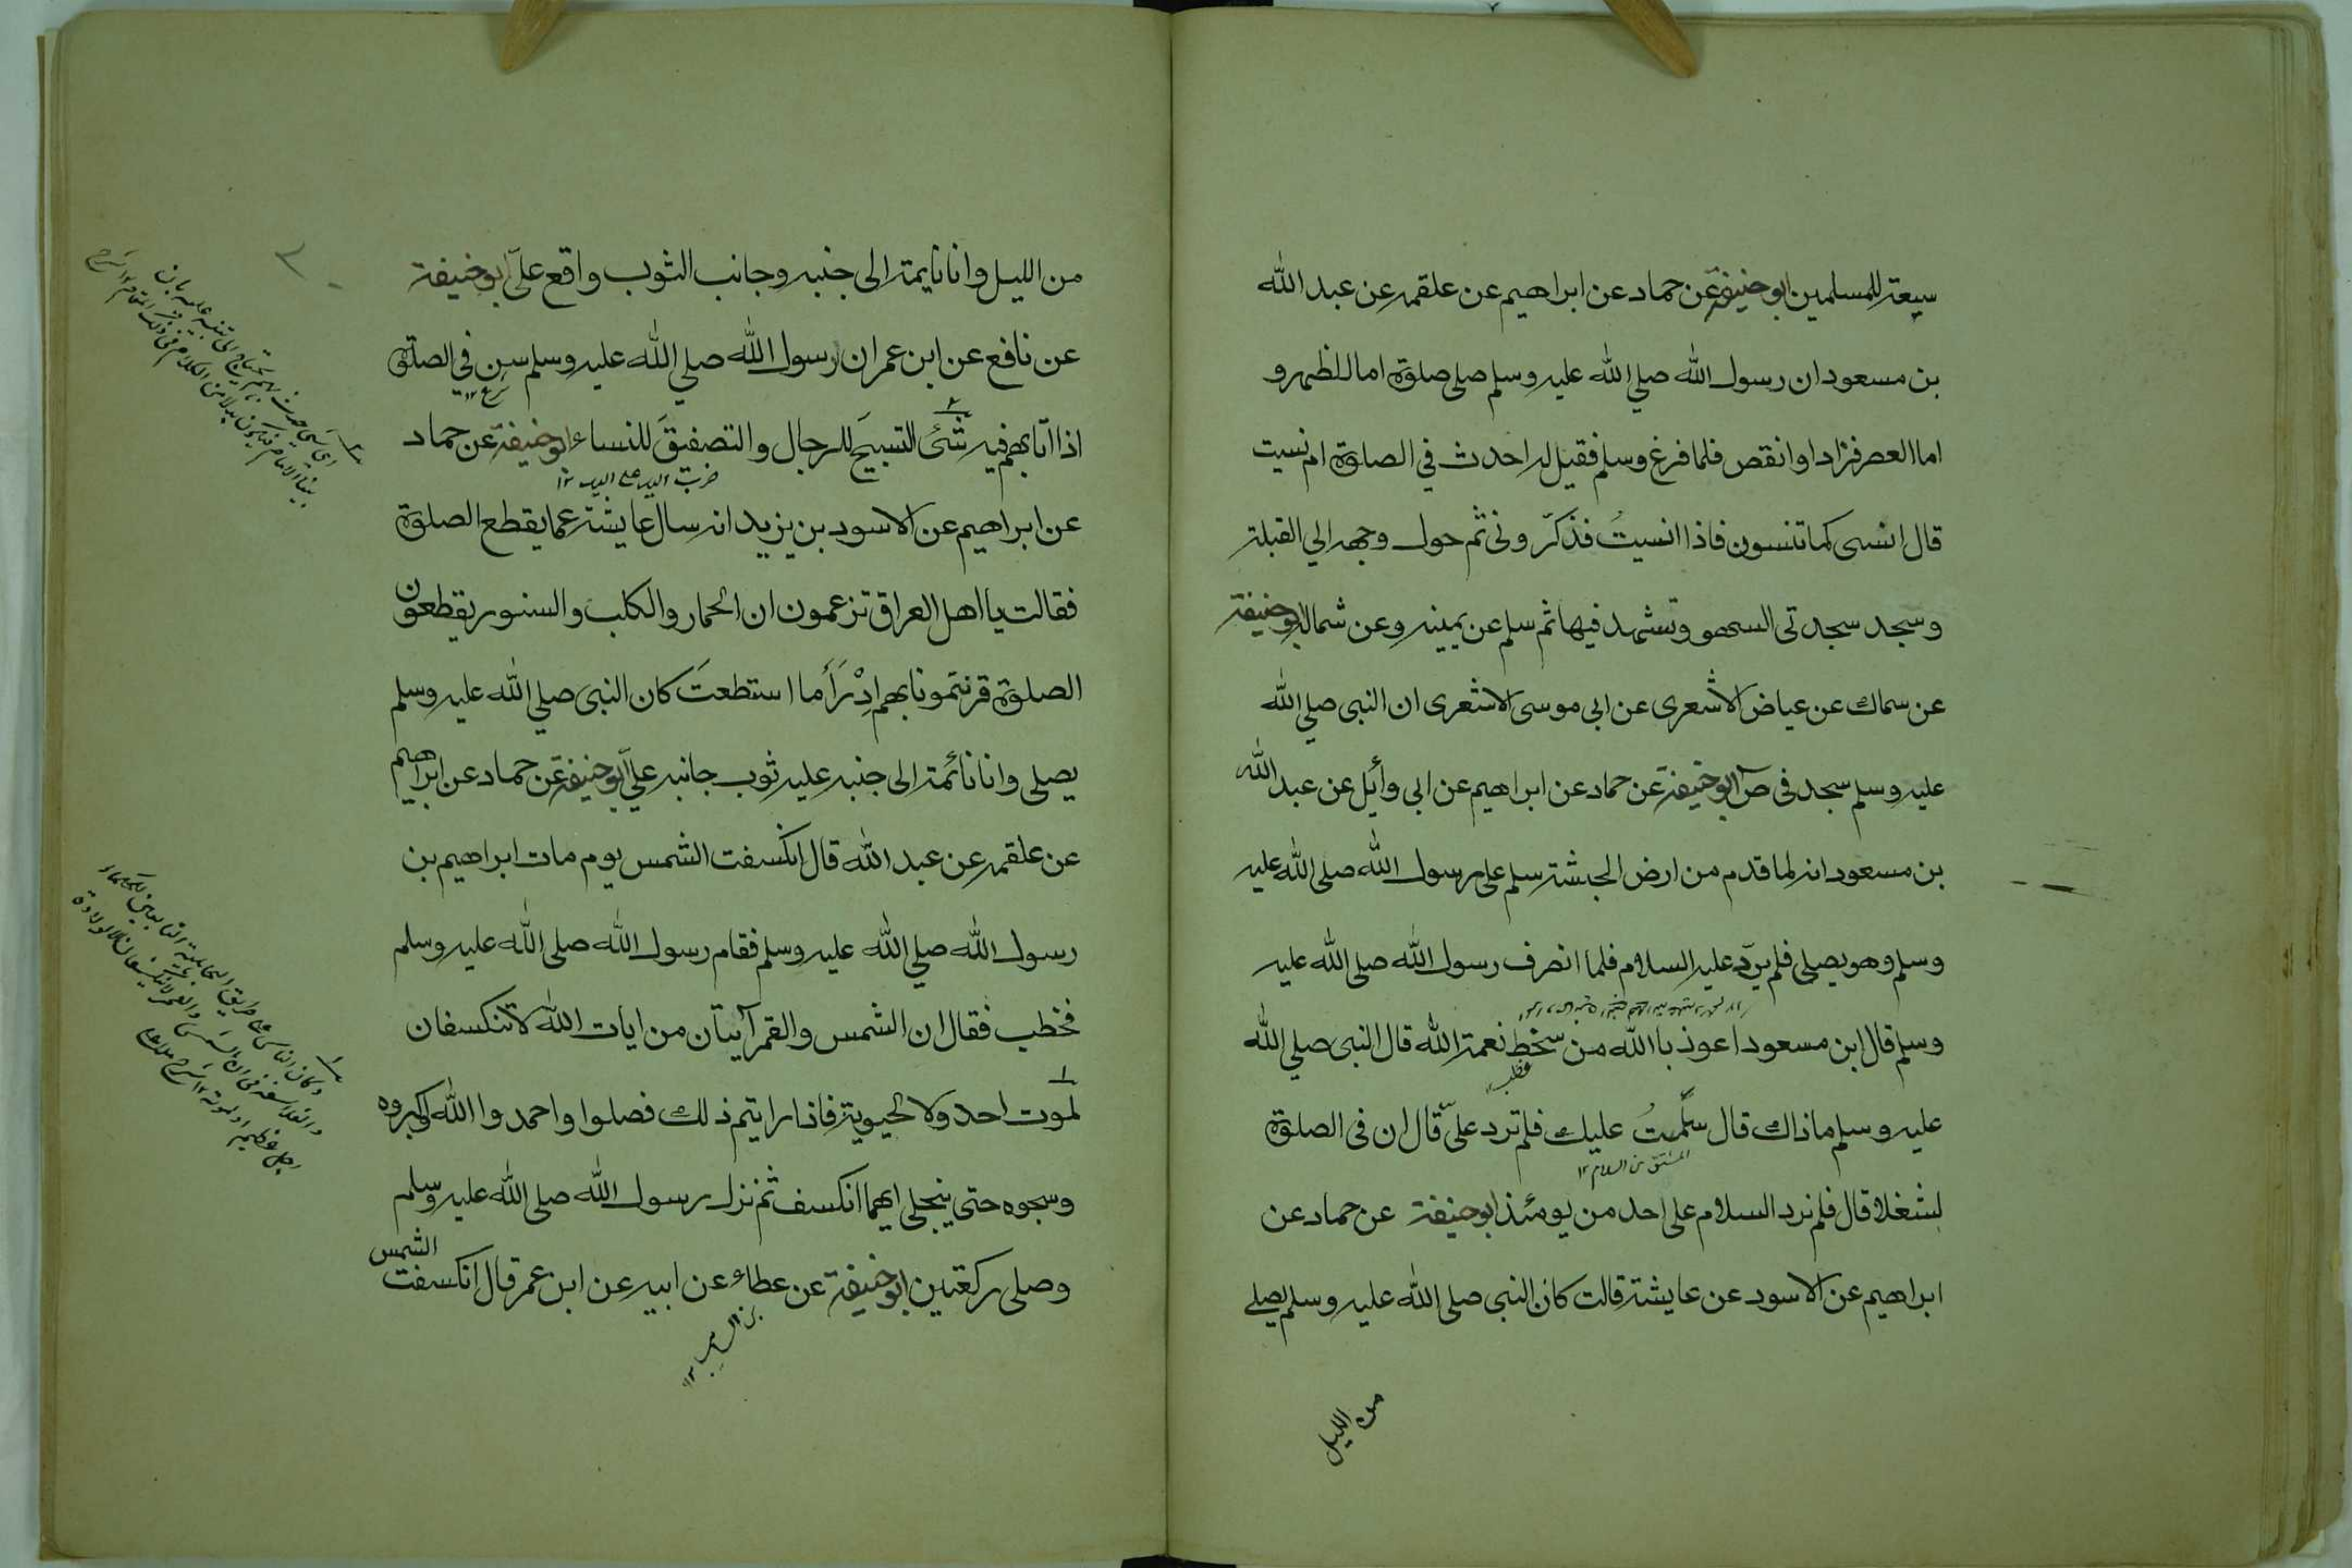 سيعة للمسلمين ابو حنيفة عن حماد عن ابراهيم عن علقمه عن عبد الله
بن مسعود ان رسول الله صلي الله عليه وسلم صلى صلوة اما الظهر و
اما العصر فزاد او انقص فلما فرغ وسلم فقيل له احدث في الصلوة ام نسيت
قال انسى كما تنسون فاذا انسيتُ فذكّروني ثم حول وجهه الي القبلة
وسجد سجدتى السهو وتشهد فيها ثم سلم عن يمينه وعن شماله ابو حنيفة
عن سماك عن عياض الاشعرى عن ابى موسى الاشعرى ان النبى صلي الله
عليه وسلم سجد فى ص ابو حنيفة عن حماد عن ابراهيم عن ابى وائل عن عبد الله
بن مسعود انه لما قدم من ارض الحبشة سلم على رسول الله صلى الله عليه
وسلم وهو يصلى فلم يردّ عليه السلام فلما انصرف رسول الله صلى الله عليه
وسلم قال ابن مسعود اعوذ با الله من سخط نعمة الله قال النبى صلي الله
عليه وسلم ماذاك قال سلّمتُ عليك فلم ترد علىّ قال ان فى الصلوة
المشتق من السلام ١٢
لشغلا قال فلم نرد السلام على احد من يومئذ ابو حنيفة عن حماد عن
ابراهيم عن الاسود عن عايشة قالت كان النبى صلى الله عليه وسلم يصلے
من الليل
من الليل وانا نايمة الى جنبه وجانب الثوب واقع علىّ ابو حنيفة
عن نافع عن ابن عمر ان رسول الله صلي الله عليه وسلم سن في الصلوة
شرع ١٢
اذا اتابهم فيه شئ التسبيحَ للرجال والتصفيقَ للنساء ابو حنيفة عن حماد
ضرب اليد على اليد ١٢
عن ابراهيم عن الاسود بن يزيد انه سال عايشة عما يقطع الصلوة
فقالت يا اهل العراق تزعمون ان الحمار والكلب والسنور يقطعون
الصلوة قرنتمونا بهم اِدْرَأ ما استطعتَ كان النبى صلي الله عليه وسلم
يصلى وانا نائمة الى جنبه عليه ثوب جانبه عليّ ابو حنيفة عن حماد عن ابراهيم
عن علقمه عن عبد الله قال انكسفت الشمس يوم مات ابراهيم بن
رسول الله صلي الله عليه وسلم فقام رسول الله صلى الله عليه وسلم
فخطب فقال ان الشمس والقمر آيتان من ايات الله لا تنكسفان
لموت احد ولا لحيوية فاذا رايتم ذلك فصلوا واحمدوا الله وكبروه
وسبحوه حتى ينجلى ايهما انكسف ثم نزل رسول الله صلى الله عليه وسلم
وصلى ركعتين ابو حنيفة عن عطاء عن ابيه عن ابن عمر قال انكسفت الشمس
بن السايب ١٢